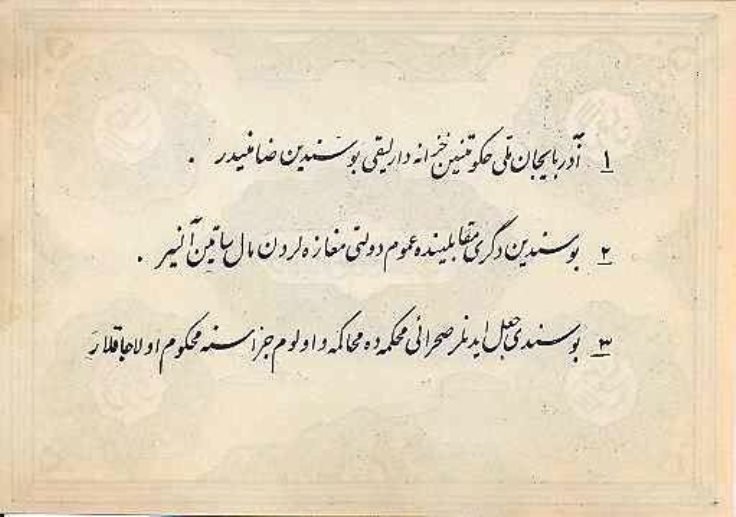 ۱ آذربایجان ملی حکومتنین خزانه دارلیقی بو سندین ضامنیدر .
۲ بو سندین دگری مقابلینده عموم دولتی مغازه لردن مال ساتین آلنیر .
۳ بو سندی جعل ایدنلر صحرائی محکمه ده محاکمه و اولوم جزاسنه محکوم اولاجاقلار